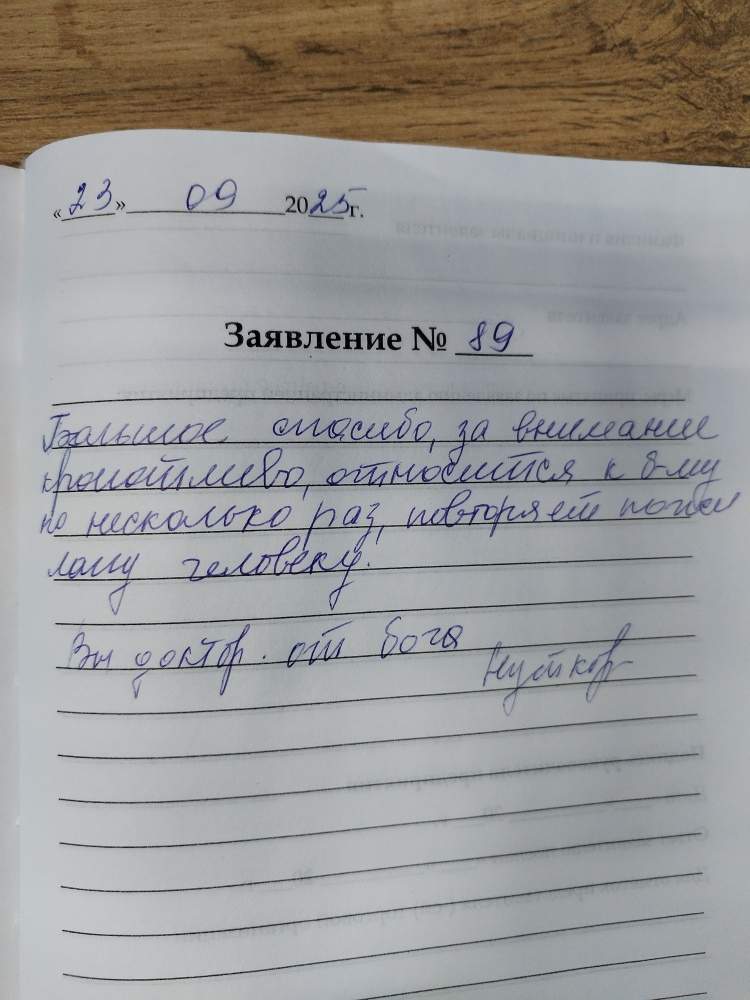 «23» 09 2025 г.
Заявление № 89
Большое спасибо, за внимание
кропотливо, относится к б-му
по несколько раз, повторяет пожи
лому человеку.
Вы доктор. от бога